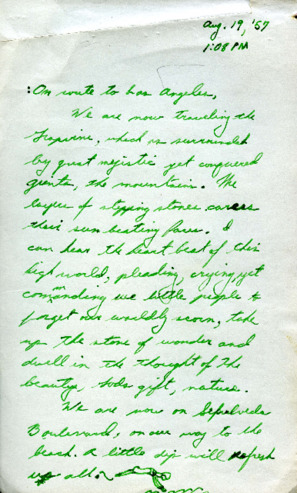 Aug. 19, '57
1:08 PM
:On route to Los Angeles,
We are now traveling the
Grapvine, which is surrounded
by great mejistic yet conquered
giants, the mountain. The
layers of stepping stones caress
their sun beating faces. I
can hear the heart beat of this
high world, pleading, crying, yet
commanding we little people to
forget our worldly scorn, take
upon the stone of wonder and
dwell in the thought of The
beauty, Gods gift, nature.
We are now on Sepulveda
Boulevard, on our way to the
beach. A little dip will refresh
us all